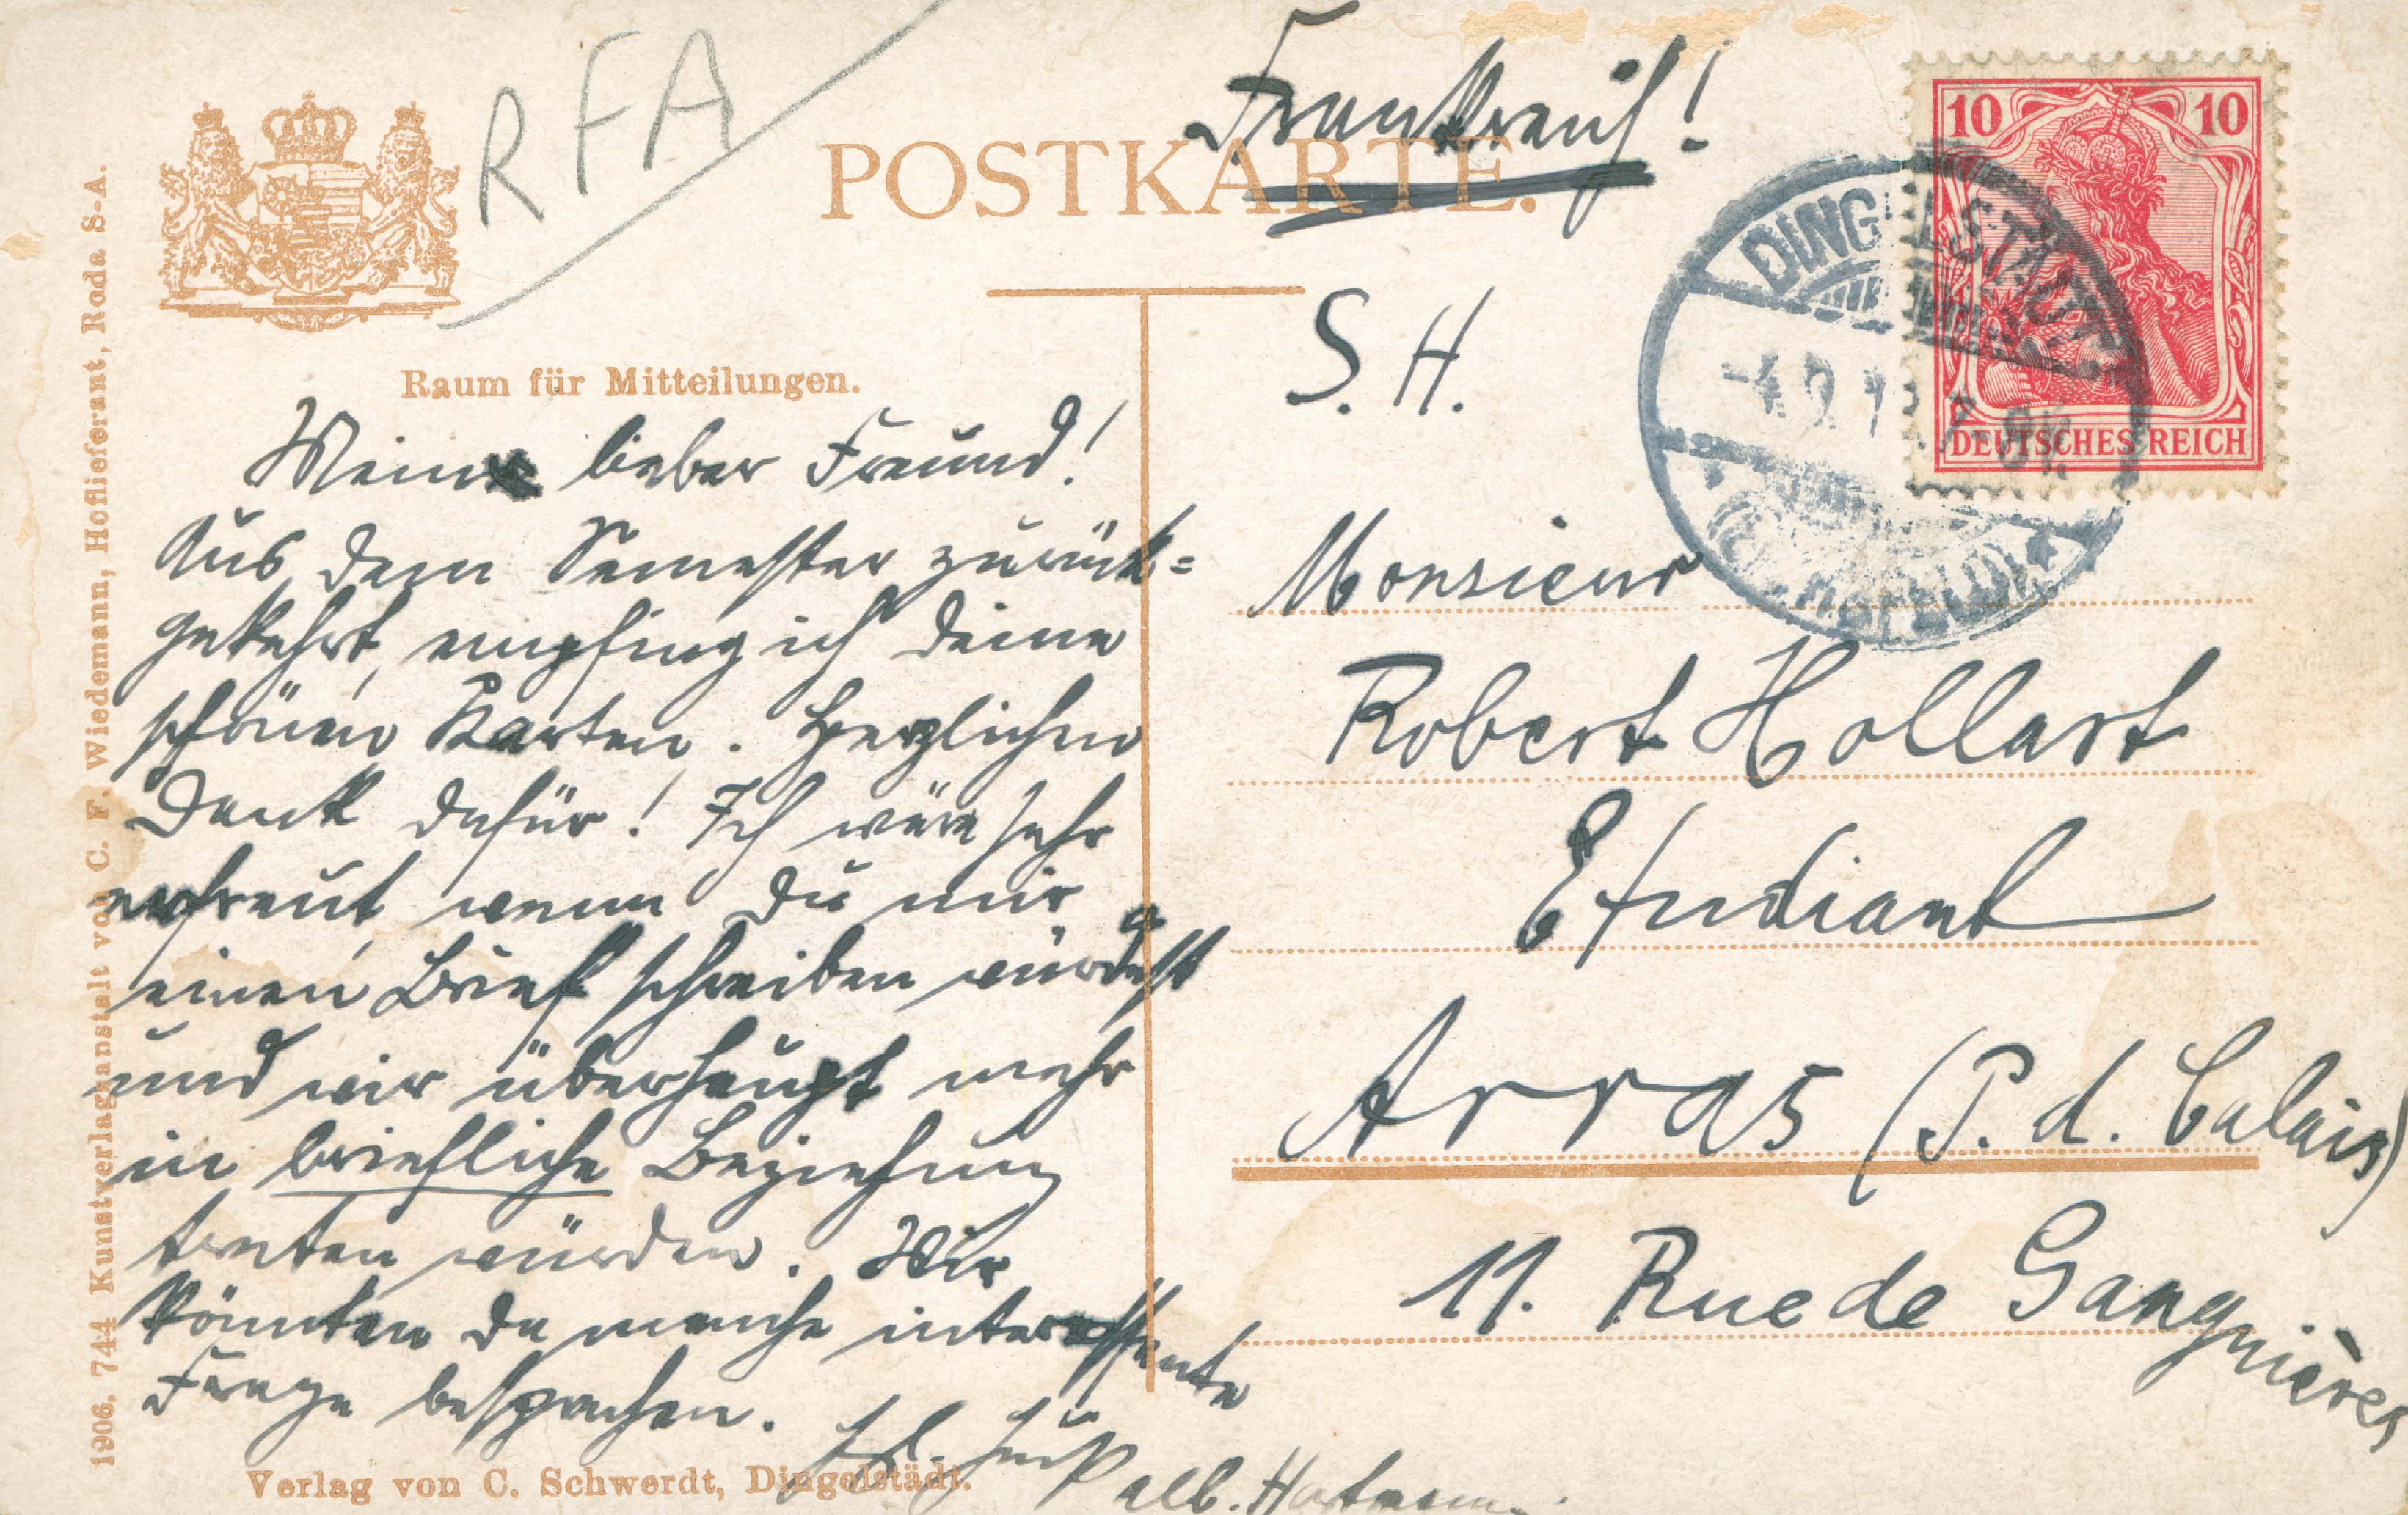 RFA
Frankreich!
POSTKARTE.
10 10
DEUTSCHES REICH
DINGELSTÄDT
(EICHSFELD)
S. H.
Raum für Mitteilungen.
Mein lieber Freund!
Aus dem Semester zurück=
gekehrt, empfing ich Deine
schönen Karten. Herzlichen
Dank dafür! Ich wäre sehr
erfreut, wenn Du mir
einen Brief schreiben würdest
und wir überhaupt mehr
in briefliche Beziehung
treten würden. Wir
könnten da manche interessante
Frage besprechen.
Hl. Gruß
Alb. Hartmann.
Monsieur
Robert Hollart
Etudiant
Arras (P. d. Calais)
11. Rue de Ganguières
Verlag von C. Schwerdt, Dingelstädt.
1906. 744 Kunstverlagsanstalt von C. F. Wiedemann, Hoflieferant, Roda S-A.